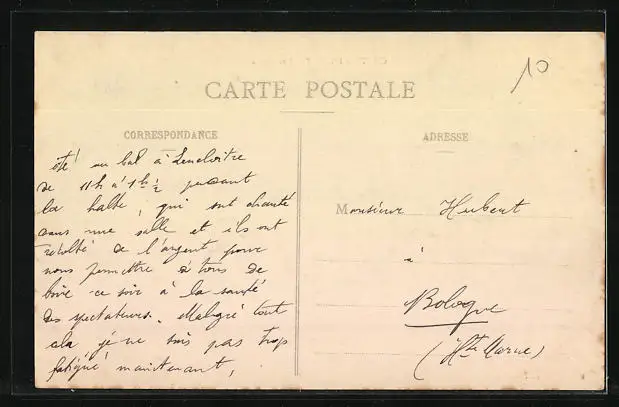 10
CARTE POSTALE
CORRESPONDANCE
ADRESSE
été au bal à Lencloître
de 11h à 1h ½ pendant
la halte, qui ont chanté
dans une salle et ils ont
récolté de l'argent pour
nous permettre à tous de
boire ce soir à la santé
des spectateurs. Malgré tout
cela je ne suis pas trop
fatigué maintenant,
Monsieur Hubert
à
Bologne
(Hte Marne)